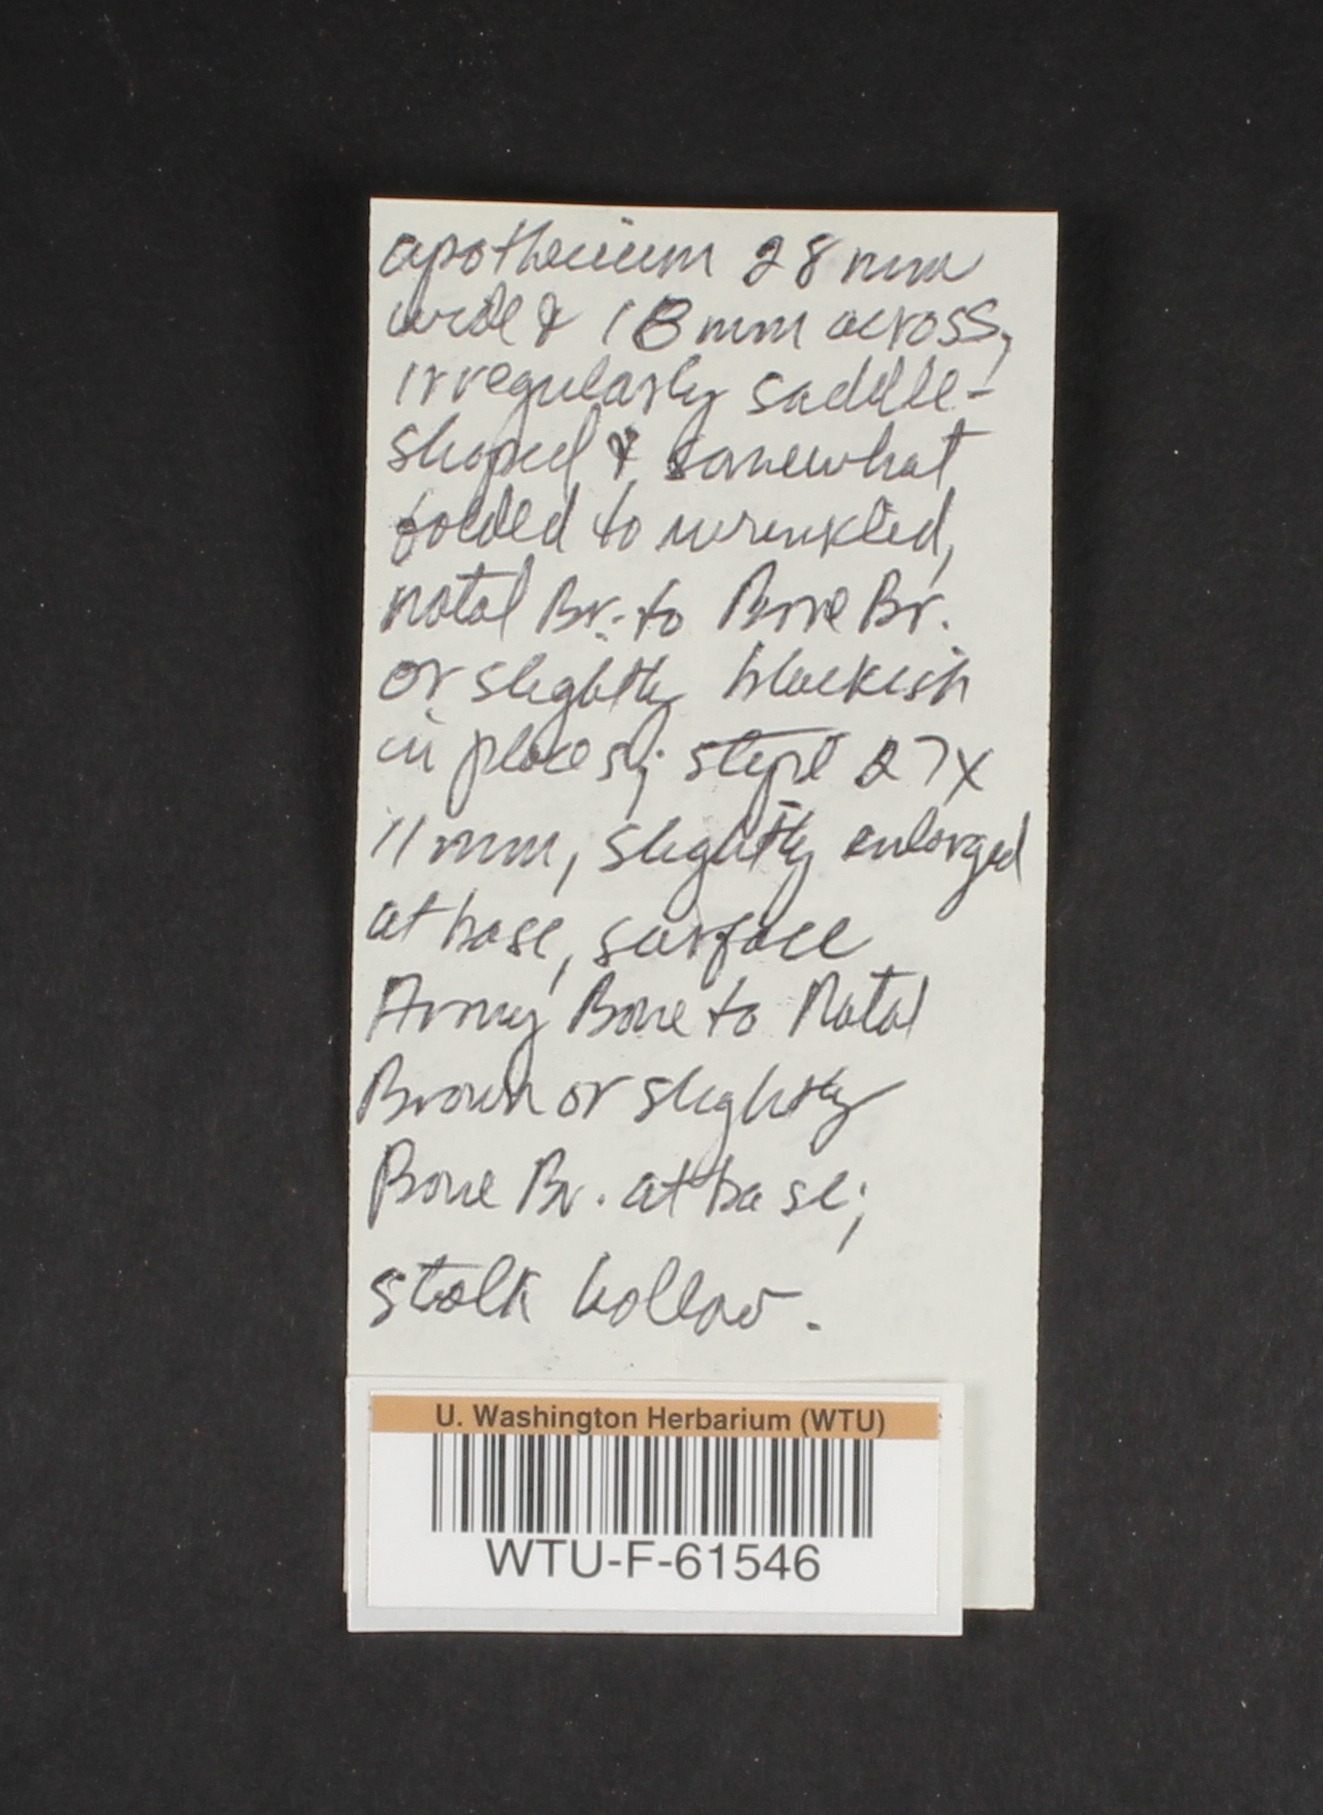 apothecium 28 mm
wide & 18 mm across,
irregularly saddle-
shaped & somewhat
folded to wrinkled,
natal Br. to Bone Br.
or slightly blackish
in places; stipe 27x
11 mm, slightly enlarged
at base, surface
Army Bone to Natal
Brown or slightly
Bone Br. at base;
stalk hollow.
U. Washington Herbarium (WTU)
WTU-F-61546